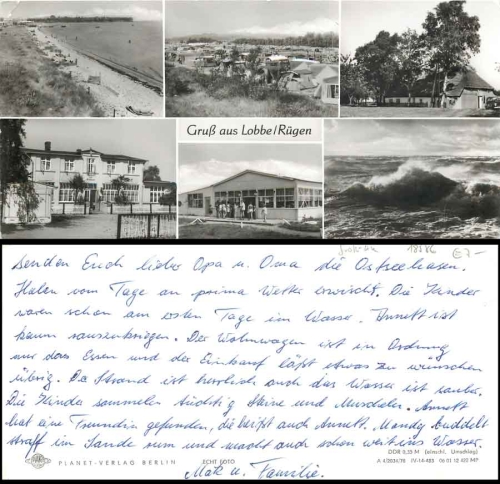 Gruß aus Lobbe/Rügen
18586
€ 7-
Senden Euch lieber Opa u. Oma die Ostseehasen.
Haben vom Tage an prima Wetter erwischt. Die Kinder
waren schon am ersten Tage im Wasser. Annett ist
kaum rauszukriegen. Der Wohnwagen ist in Ordnung
nur das Essen und der Einkauf läßt etwas zu wünschen
übrig. Der Strand ist herrlich auch das Wasser ist sauber.
Die Kinder sammeln tüchtig Steine und Muscheln. Annett
hat eine Freundin gefunden, die heißt auch Annett. Mandy buddelt
straff im Sande rum und macht auch schon weit ins Wasser.
Mäk u. Familie.
PLANET-VERLAG BERLIN
ECHT FOTO
DDR 0,35 M (einschl. Umschlag)
A 4/2034/78 IV-14-483 06 01 12 422 MP